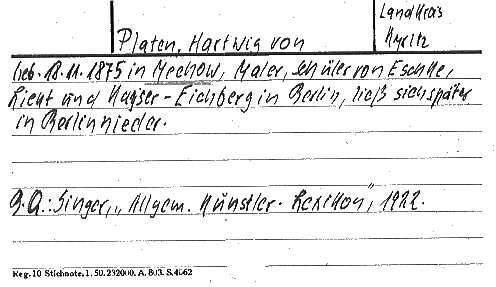 Landkreis
Platen, Hartwig von
Kyritz
Geb. 18.11.1875 in Mechow, Maler, Schüler von Eschke,
Licht und Kayser-Eichberg in Berlin, ließ sich später
in Berlin nieder.
G.Q.: Singer, „Allgem. Künstler-Lexikon", 1922.
Reg. 10 Stichnote, 1, 50. 232000. A. 803. S. 4662